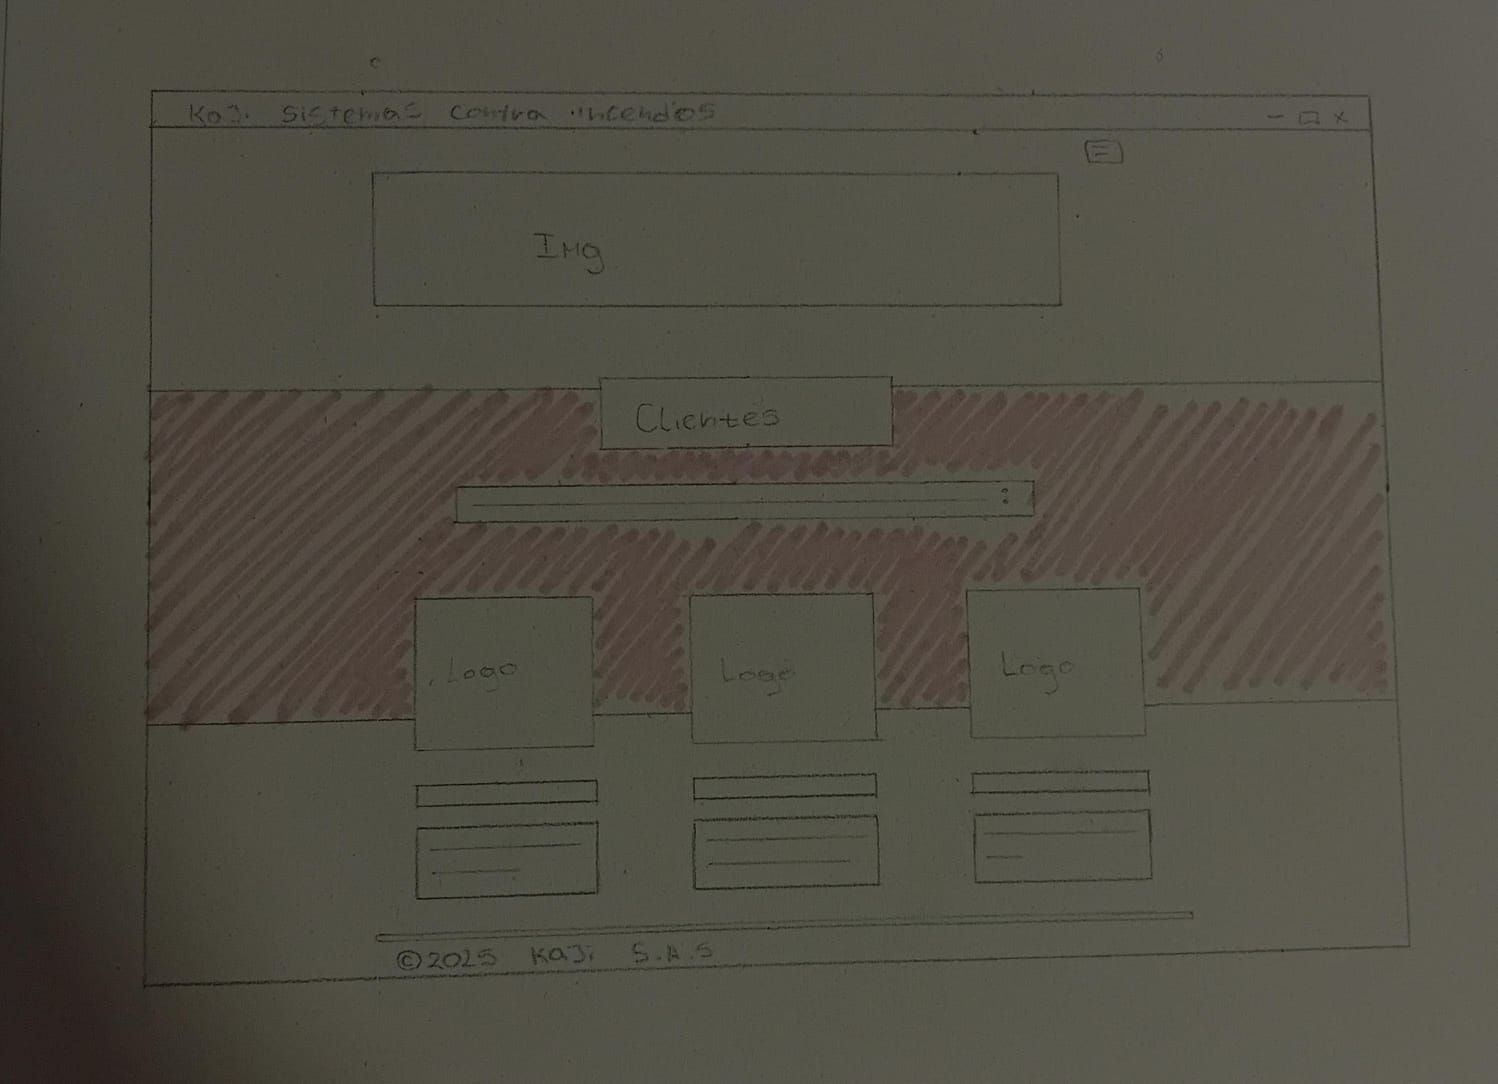 Kaji Sistemas contra incendos
Img
Clientes
Logo
Logo
Logo
©2025 Kaji S.A.S